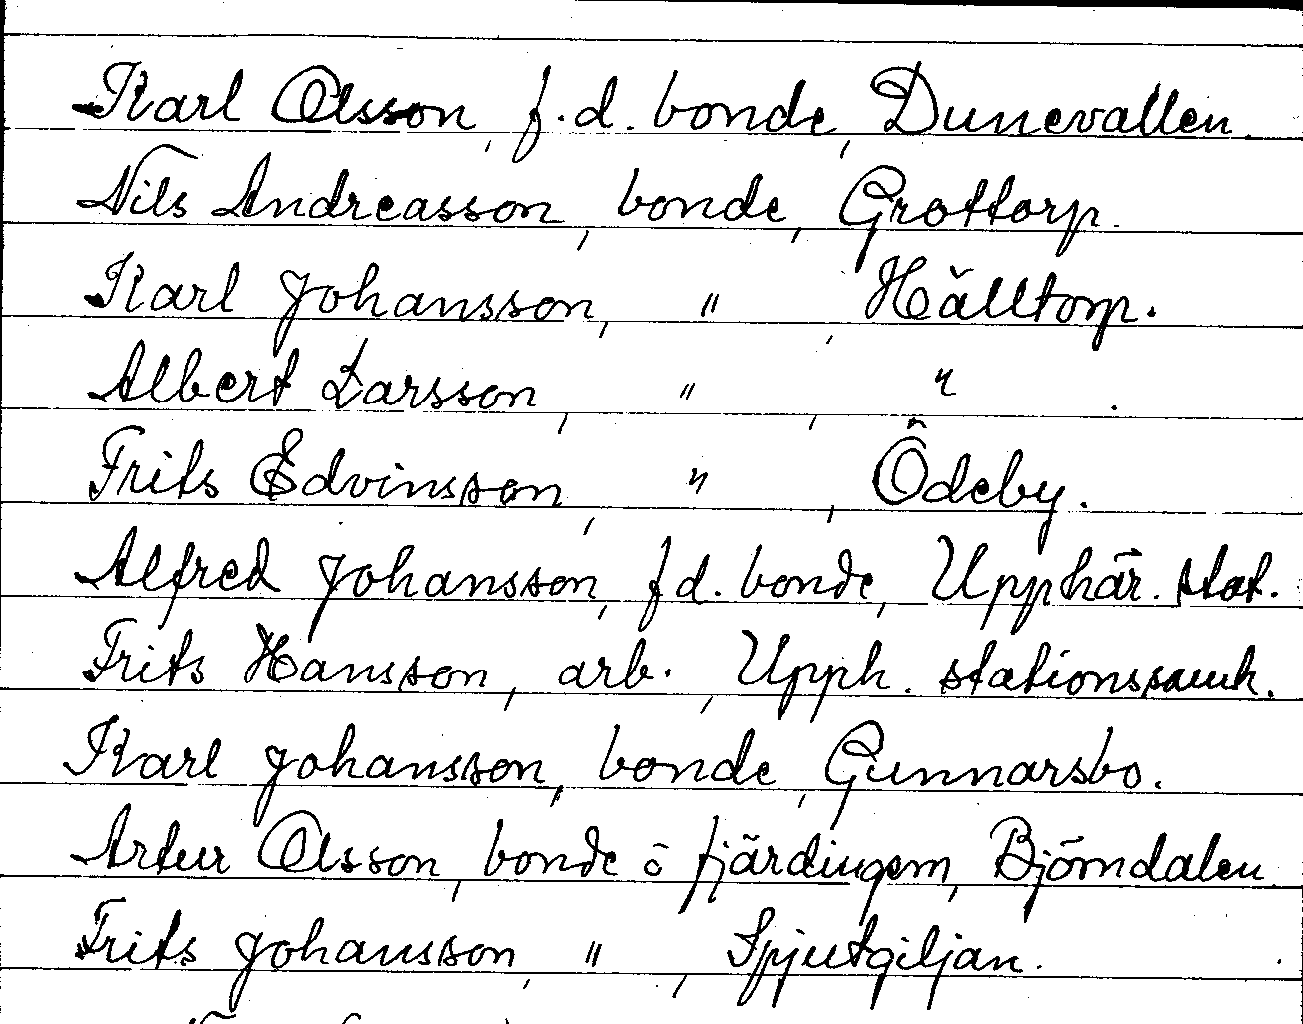 Karl Olsson, f.d. bonde, Dunevallen.
Nils Andreasson, bonde, Grottorp.
Karl Johansson, " , Hälltorp.
Albert Larsson, " , " .
Frits Edvinsson, " , Ödeby.
Alfred Johansson, f d. bonde, Upphär. stat.
Frits Hansson, arb. , Upph. stationssamh.
Karl Johansson, bonde, Gunnarsbo.
Artur Olsson, bonde o fjärdingsm, Björndalen.
Frits Johansson, " , Spjutgiljan.